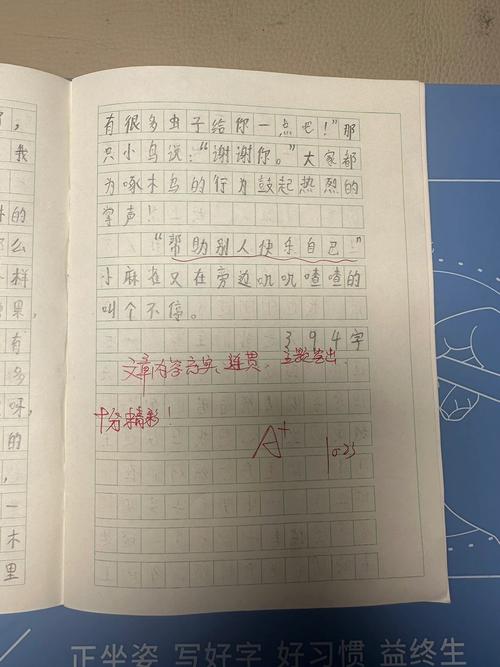 我
的
么
样
果,
有
多
呀,
的
一
木
里
有很多虫子给你一点吧!”那
只小鸟说:“谢谢你。”大家都
为啄木鸟的行为鼓起热烈的
掌声!
“帮助别人快乐自己!”
小麻雀又在旁边叽叽喳喳的
叫个不停。
394字
文章内容充实、连贯,主题突出,
十分精彩!
A+
10.25
正坐姿 写好字 好习惯 益终生